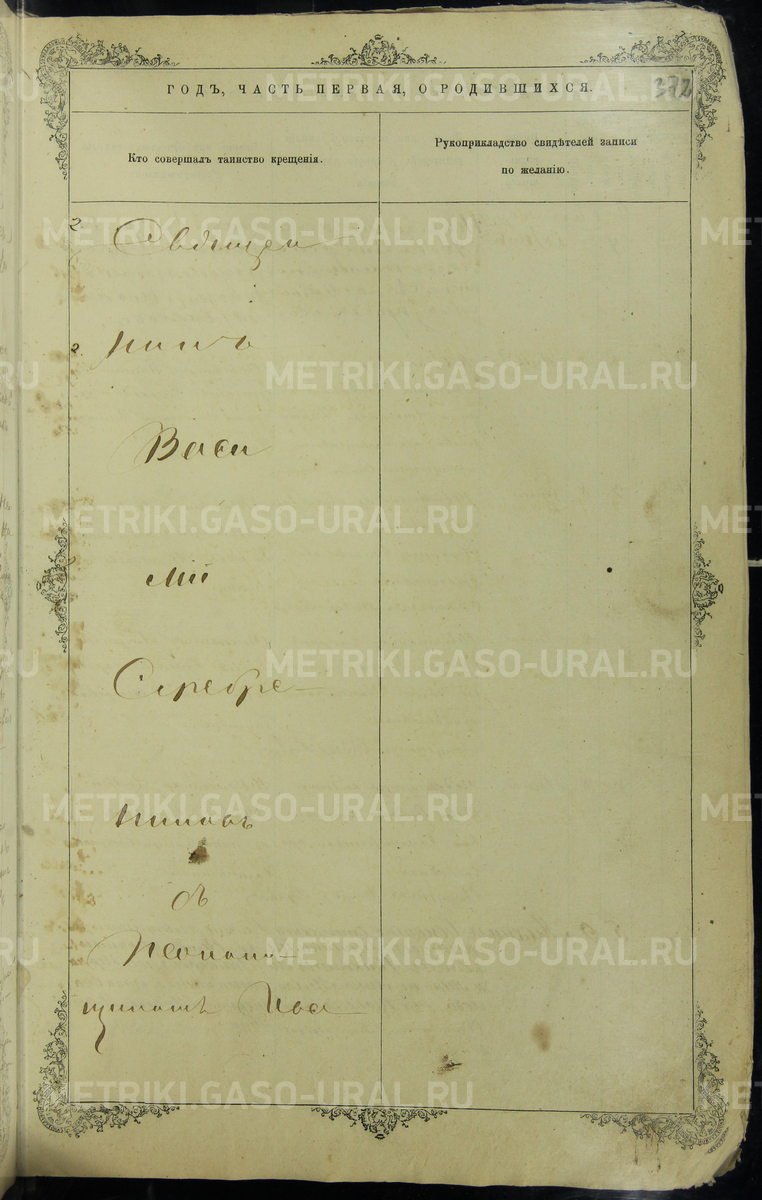 ГОДЪ, ЧАСТЬ ПЕРВАЯ, О РОДИВШИХСЯ.
372
Кто совершалъ таинство крещенія.
Рукоприкладство свидѣтелей записи
по желанію.
Священ
никъ
Васи
лій
Серебре
никовъ
съ
Псаломщикомъ
METRIKI.GASO-URAL.RU